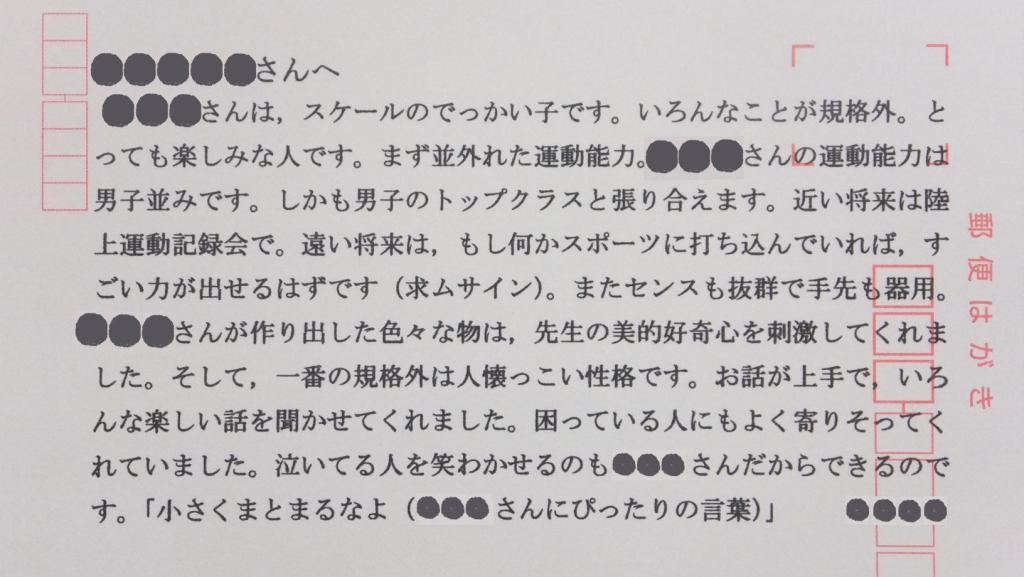 ●●●●●さんへ
●●●さんは，スケールのでっかい子です。いろんなことが規格外。と
っても楽しみな人です。まず並外れた運動能力。●●●さんの運動能力は
男子並みです。しかも男子のトップクラスと張り合えます。近い将来は陸
上運動記録会で。遠い将来は，もし何かスポーツに打ち込んでいれば，す
ごい力が出せるはずです（求ムサイン）。またセンスも抜群で手先も器用。
●●●さんが作り出した色々な物は，先生の美的好奇心を刺激してくれま
した。そして，一番の規格外は人懐っこい性格です。お話が上手で，いろ
んな楽しい話を聞かせてくれました。困っている人にもよく寄りそってく
れていました。泣いてる人を笑わかせるのも●●●さんだからできるので
す。「小さくまとまるなよ（●●●さんにぴったりの言葉）」 ●●●●
郵便はがき